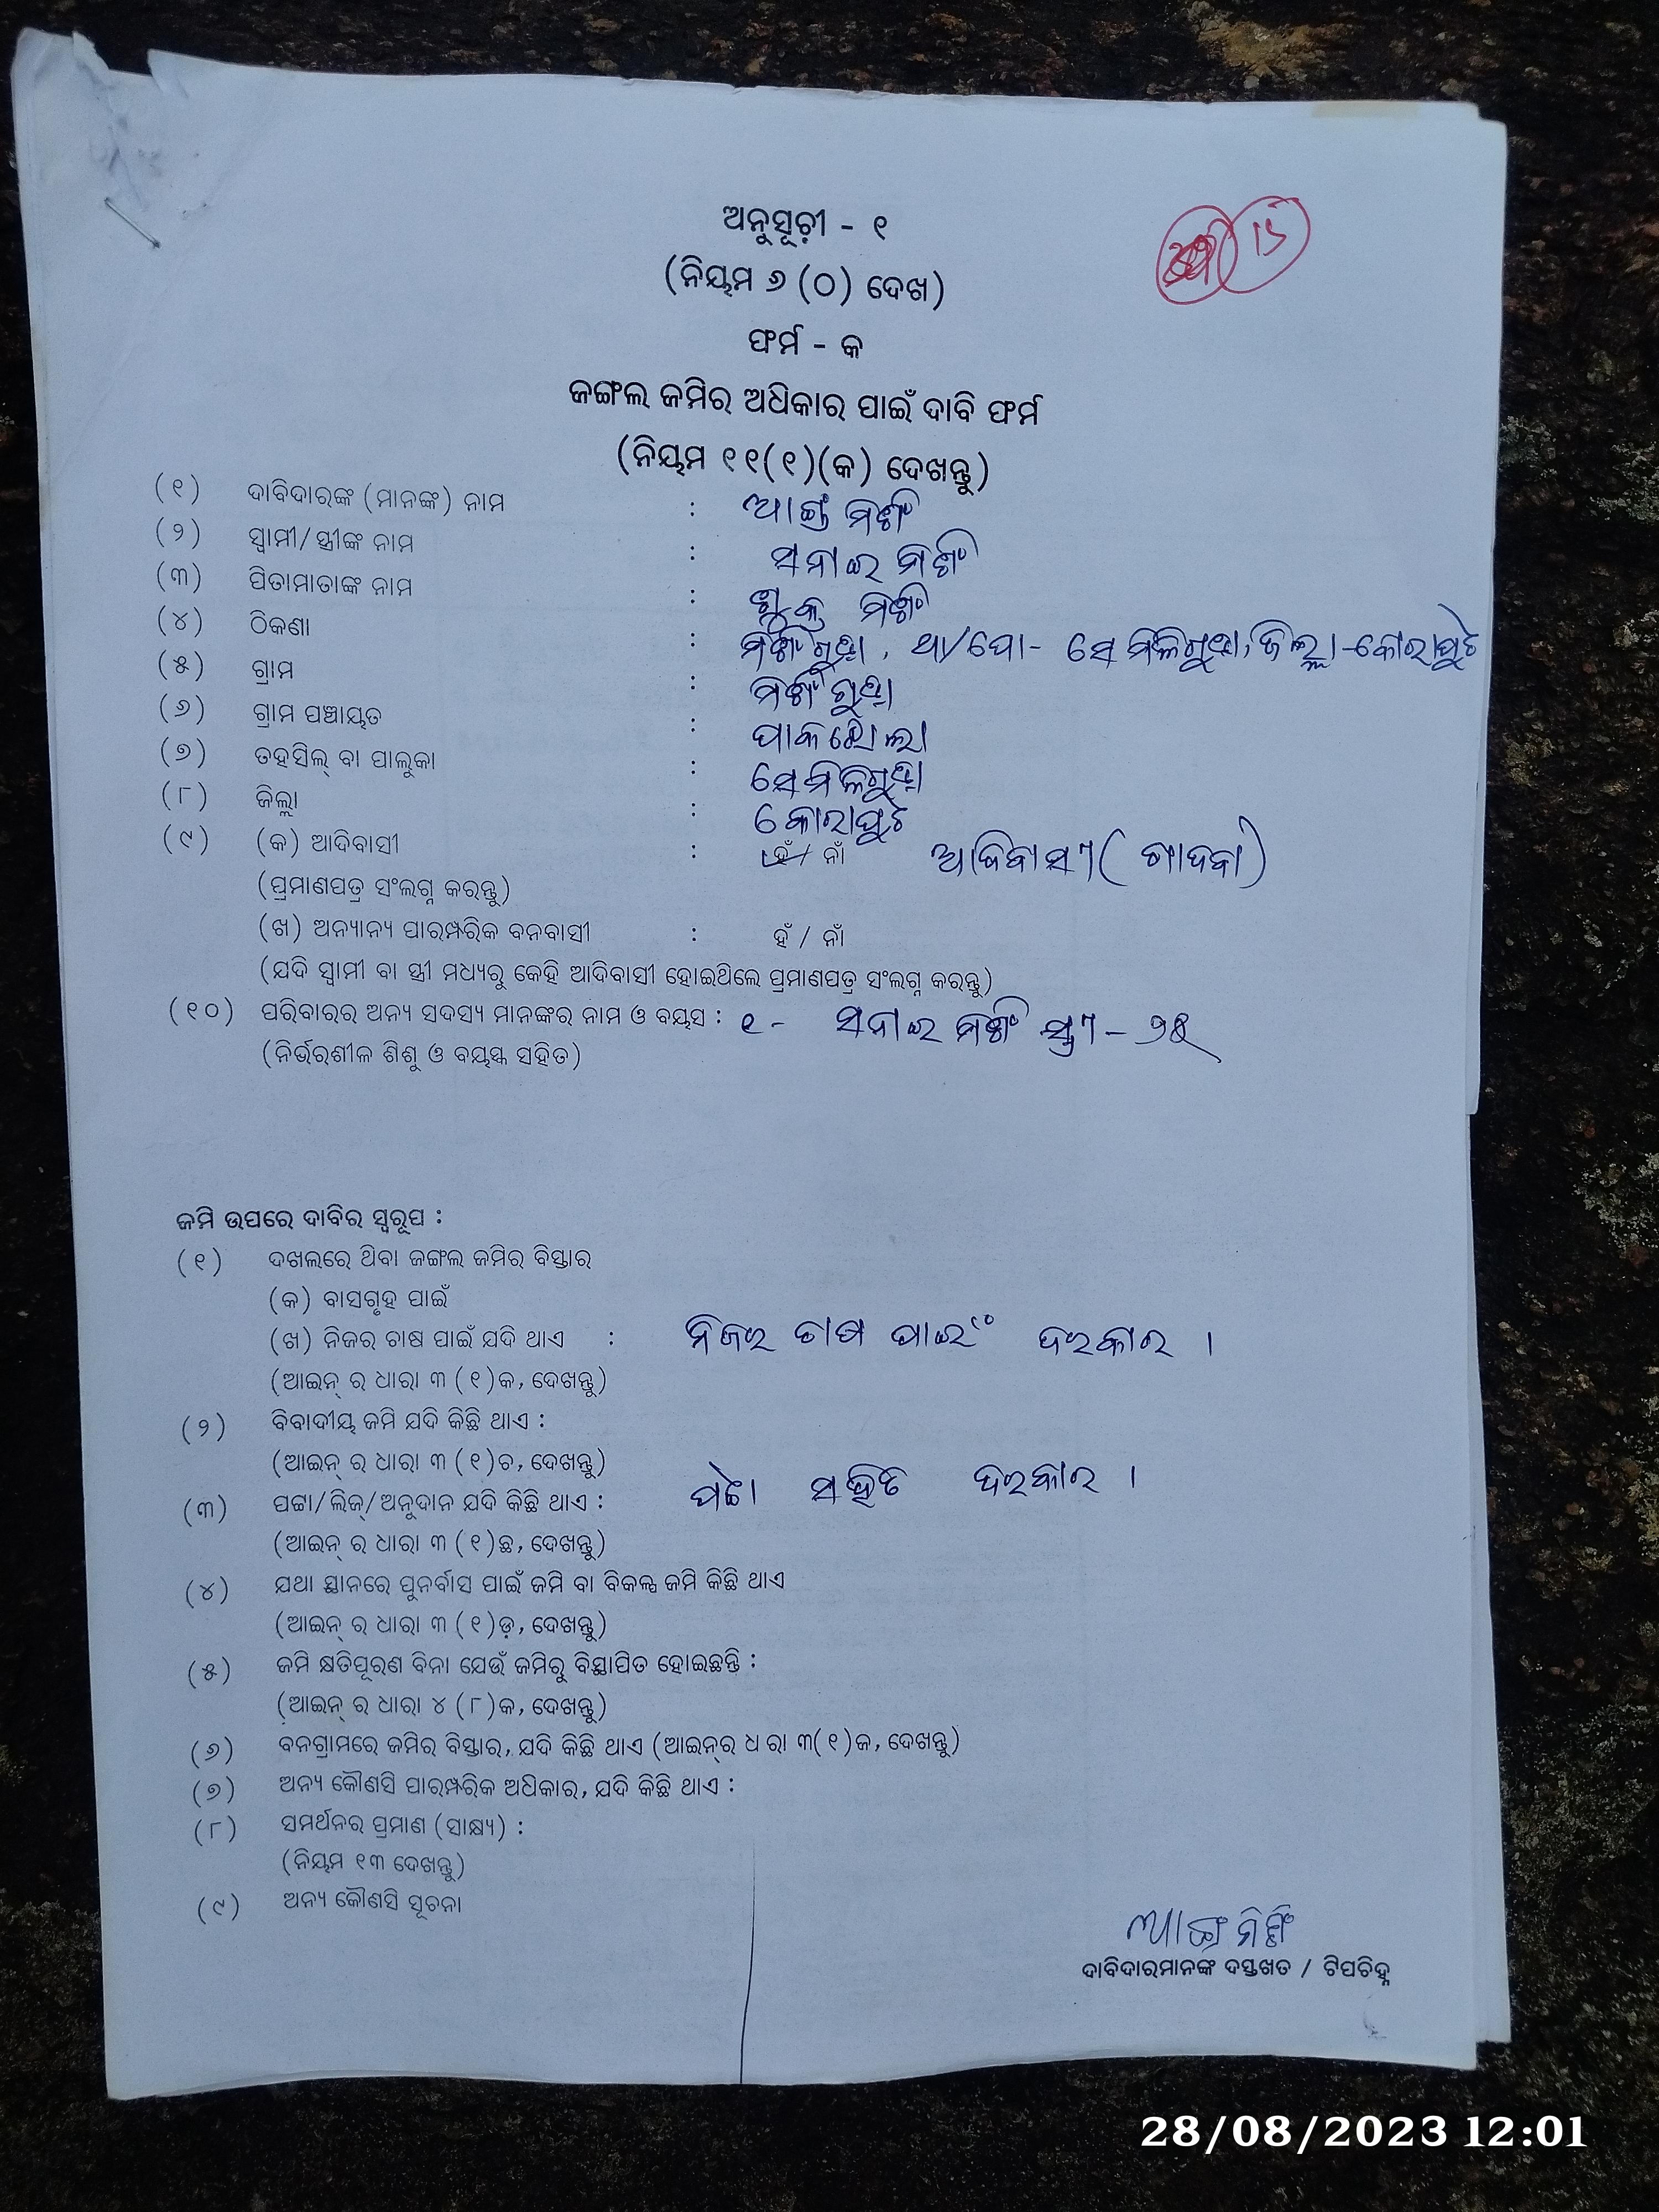 ଅନୁସୂଚୀ - ୧
(ନିୟମ ୬ (୦) ଦେଖ)
ଫର୍ମ - କ
ଜଙ୍ଗଲ ଜମିର ଅଧିକାର ପାଇଁ ଦାବି ଫର୍ମ
(ନିୟମ ୧୧(୧)(କ) ଦେଖନ୍ତୁ)
(୧) ଦାବିଦାରଙ୍କ (ମାନଙ୍କ) ନାମ :
(୨) ସ୍ୱାମୀ/ସ୍ତ୍ରୀଙ୍କ ନାମ : ସନାଇ
(୩) ପିତାମାତାଙ୍କ ନାମ :
(୪) ଠିକଣା : ଥା/ପୋ- ସେମିଳିଗୁଡ଼ା, ଜିଲ୍ଲା-କୋରାପୁଟ
(୫) ଗ୍ରାମ :
(୬) ଗ୍ରାମ ପଞ୍ଚାୟତ :
(୭) ତହସିଲ୍ ବା ପାଲୁକା : ସେମିଳିଗୁଡ଼ା
(୮) ଜିଲ୍ଲା : କୋରାପୁଟ
(୯) (କ) ଆଦିବାସୀ : ହଁ / ନାଁ ଆଦିବାସୀ (ଗାଦବା)
(ପ୍ରମାଣପତ୍ର ସଂଲଗ୍ନ କରନ୍ତୁ)
(ଖ) ଅନ୍ୟାନ୍ୟ ପାରମ୍ପରିକ ବନବାସୀ : ହଁ / ନାଁ
(ଯଦି ସ୍ୱାମୀ ବା ସ୍ତ୍ରୀ ମଧ୍ୟରୁ କେହି ଆଦିବାସୀ ହୋଇଥିଲେ ପ୍ରମାଣପତ୍ର ସଂଲଗ୍ନ କରନ୍ତୁ)
(୧୦) ପରିବାରର ଅନ୍ୟ ସଦସ୍ୟ ମାନଙ୍କର ନାମ ଓ ବୟସ : ୧- ସନାଇ ସ୍ତ୍ରୀ -
(ନିର୍ଭରଶୀଳ ଶିଶୁ ଓ ବୟସ୍କ ସହିତ)
ଜମି ଉପରେ ଦାବିର ସ୍ୱରୂପ :
(୧) ଦଖଲରେ ଥିବା ଜଙ୍ଗଲ ଜମିର ବିସ୍ତାର
(କ) ବାସଗୃହ ପାଇଁ
(ଖ) ନିଜର ଚାଷ ପାଇଁ ଯଦି ଥାଏ : ନିଜର ଚାଷ ପାଇଁ ଦରକାର ।
(ଆଇନ୍ ର ଧାରା ୩ (୧)କ, ଦେଖନ୍ତୁ)
(୨) ବିବାଦୀୟ ଜମି ଯଦି କିଛି ଥାଏ :
(ଆଇନ୍ ର ଧାରା ୩ (୧)ଚ, ଦେଖନ୍ତୁ)
(୩) ପଟ୍ଟା/ଲିଜ୍/ଅନୁଦାନ ଯଦି କିଛି ଥାଏ : ପଟ୍ଟା ସହିତ ଦରକାର ।
(ଆଇନ୍ ର ଧାରା ୩ (୧)ଛ, ଦେଖନ୍ତୁ)
(୪) ଯଥା ସ୍ଥାନରେ ପୁନର୍ବାସ ପାଇଁ ଜମି ବା ବିକଳ୍ପ ଜମି କିଛି ଥାଏ
(ଆଇନ୍ ର ଧାରା ୩ (୧)ଡ଼, ଦେଖନ୍ତୁ)
(୫) ଜମି କ୍ଷତିପୂରଣ ବିନା ଯେଉଁ ଜମିରୁ ବିସ୍ଥାପିତ ହୋଇଛନ୍ତି :
(ଆଇନ୍ ର ଧାରା ୪ (୮)କ, ଦେଖନ୍ତୁ)
(୬) ବନଗ୍ରାମରେ ଜମିର ବିସ୍ତାର, ଯଦି କିଛି ଥାଏ (ଆଇନ୍‌ର ଧ ରା ୩(୧)କ, ଦେଖନ୍ତୁ)
(୭) ଅନ୍ୟ କୌଣସି ପାରମ୍ପରିକ ଅଧିକାର, ଯଦି କିଛି ଥାଏ :
(୮) ସମର୍ଥନର ପ୍ରମାଣ (ସାକ୍ଷ୍ୟ) :
(ନିୟମ ୧୩ ଦେଖନ୍ତୁ)
(୯) ଅନ୍ୟ କୌଣସି ସୂଚନା
ଦାବିଦାରମାନଙ୍କ ଦସ୍ତଖତ / ଟିପଚିହ୍ନ
28/08/2023 12:01